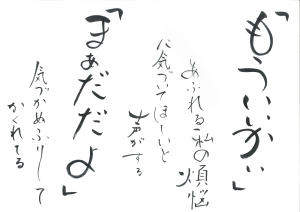 「もういいかい」
あふれる私の煩悩
に気づいてほしいと
声がする
「まぁだだよ」
気づかぬふりして
かくれてる